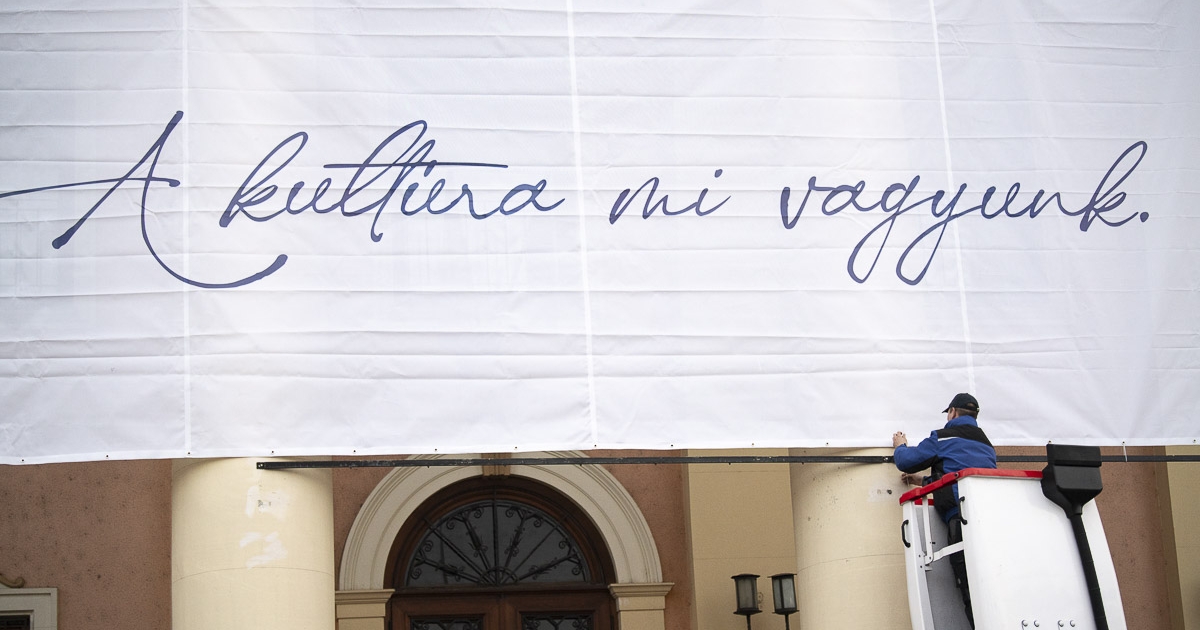 A kultúra mi vagyunk.